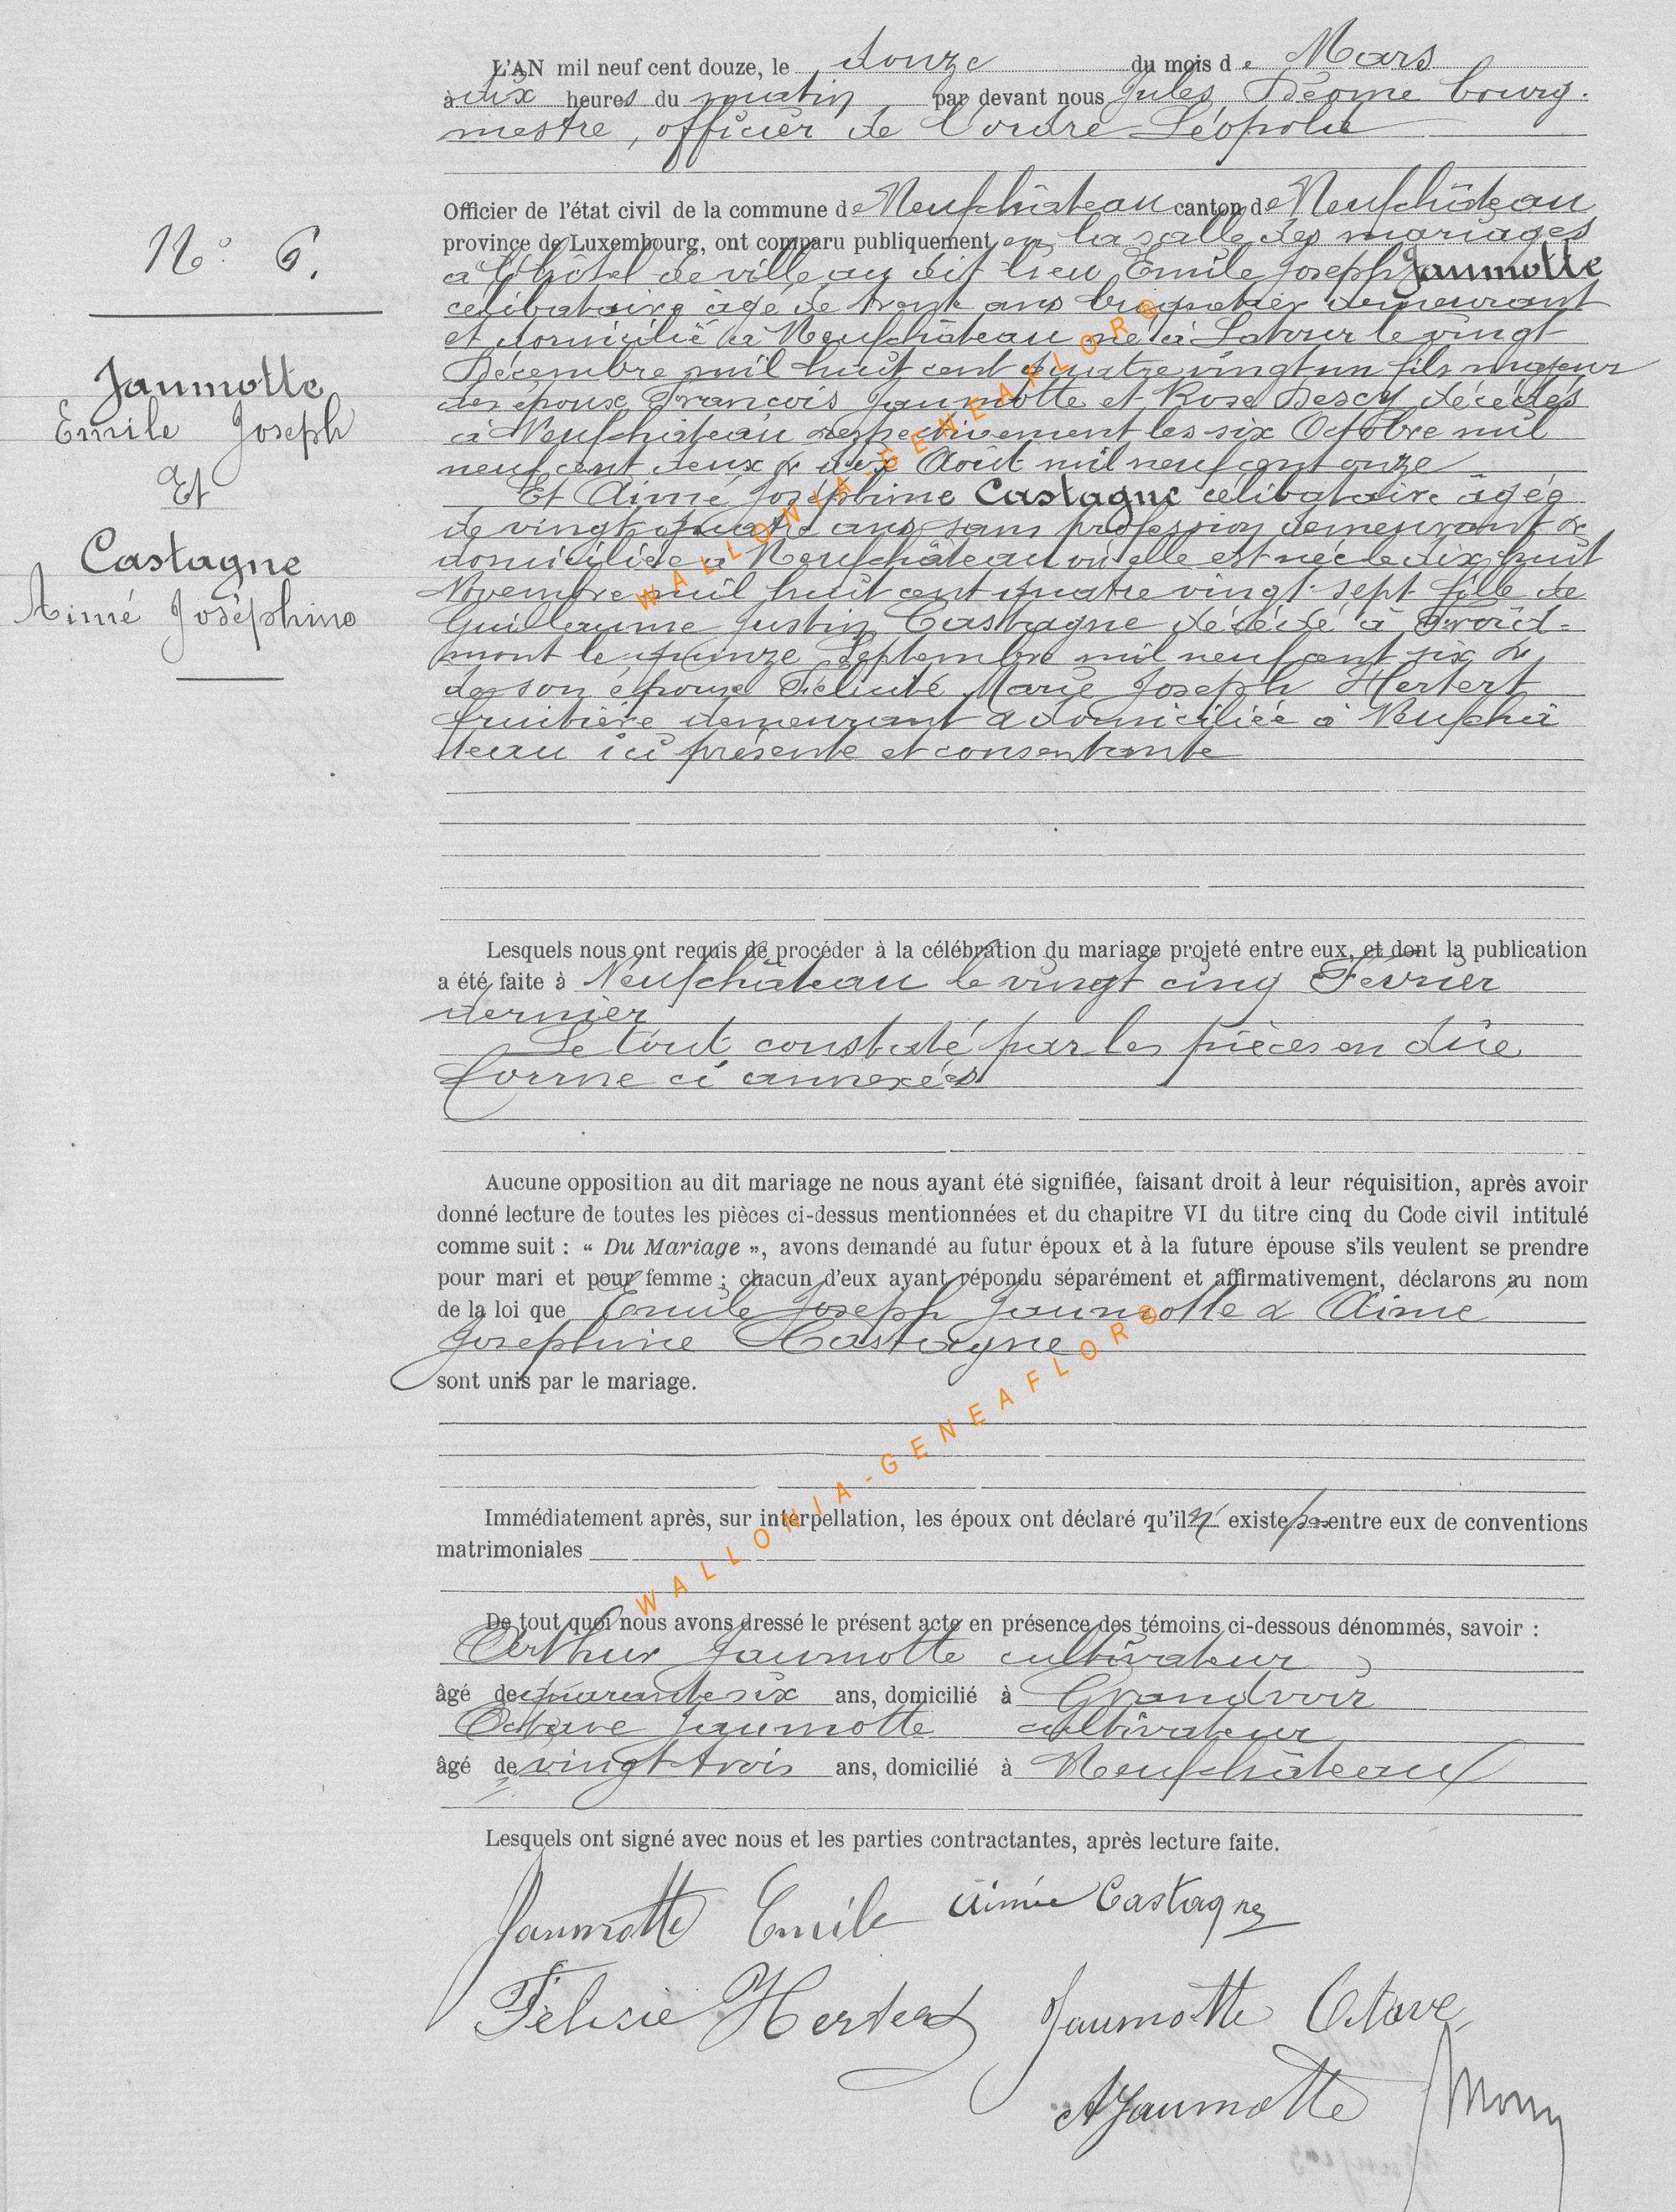 L'AN mil neuf cent douze, le douze du mois de Mars
à dix heures du matin par devant nous Jules Déome bourg-
mestre, officier de l'ordre Léopold
Officier de l'état civil de la commune de Neufchâteau canton de Neufchâteau
province de Luxembourg, ont comparu publiquement en la salle des mariages
N° 6.
à l'hôtel de ville au dit lieu Emile Joseph Jaumotte
célibataire âgé de trente ans briquetier demeurant
et domicilié à Neufchâteau né à Latour le vingt
Décembre mil huit cent quatre vingt un fils majeur
des époux François Jaumotte et Rose Descy décédés
à Neufchâteau respectivement les six Octobre mil
neuf cent deux & dix Août mil neuf cent onze
Jaumotte
Emile Joseph
Et
Castagne
Aimé Joséphine
Et Aimé Joséphine Castagne célibataire âgée
de vingt quatre ans sans profession demeurant &
domiciliée à Neufchâteau où elle est née le dix huit
Novembre mil huit cent quatre vingt sept fille de
Guillaume Justin Castagne décédé à Froid-
mont le quinze Septembre mil neuf cent six &
de son épouse Félicité Marie Joseph Hertert
fruitière demeurant & domiciliée à Neufchâ
teau ici présente et consentante
Lesquels nous ont requis de procéder à la célébration du mariage projeté entre eux, et dont la publication
a été faite à Neufchâteau le vingt cinq Février
dernier
Le tout constaté par les pièces en due
forme ci annexées
Aucune opposition au dit mariage ne nous ayant été signifiée, faisant droit à leur réquisition, après avoir
donné lecture de toutes les pièces ci-dessus mentionnées et du chapitre VI du titre cinq du Code civil intitulé
comme suit : « Du Mariage », avons demandé au futur époux et à la future épouse s'ils veulent se prendre
pour mari et pour femme ; chacun d'eux ayant répondu séparément et affirmativement, déclarons au nom
de la loi que Emile Joseph Jaumotte & Aimé
Joséphine Castagne
sont unis par le mariage.
Immédiatement après, sur interpellation, les époux ont déclaré qu'il n' existe pas entre eux de conventions
matrimoniales
De tout quoi nous avons dressé le présent acte en présence des témoins ci-dessous dénommés, savoir :
Arthur Jaumotte cultivateur
âgé de quarante six ans, domicilié à Grandvoir
Octave Jaumotte cultivateur
âgé de vingt trois ans, domicilié à Neufchâteau
Lesquels ont signé avec nous et les parties contractantes, après lecture faite.
Jaumotte Emile Aimée Castagne
Félicie Hertert Jaumotte Octave
A Jaumotte
WALLONIA-GENEAFLOR®
WALLONIA-GENEAFLOR®